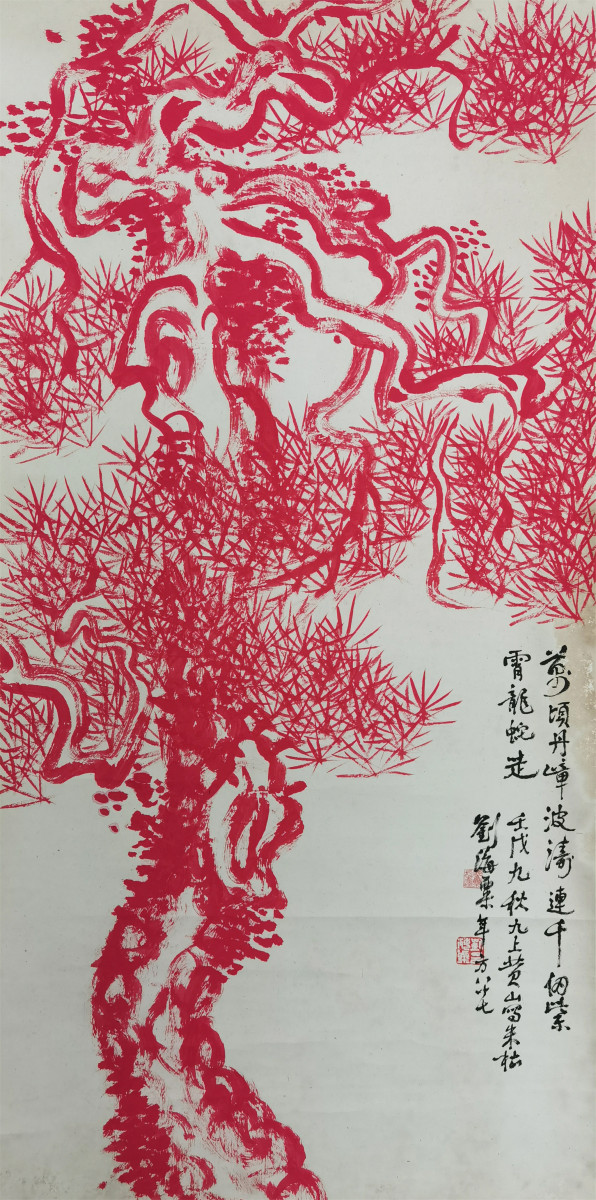 萬頃丹嶂波濤連千仞紫
霄龍蛇走
壬戌九秋九上黃山寫朱松
劉海粟年方八十七